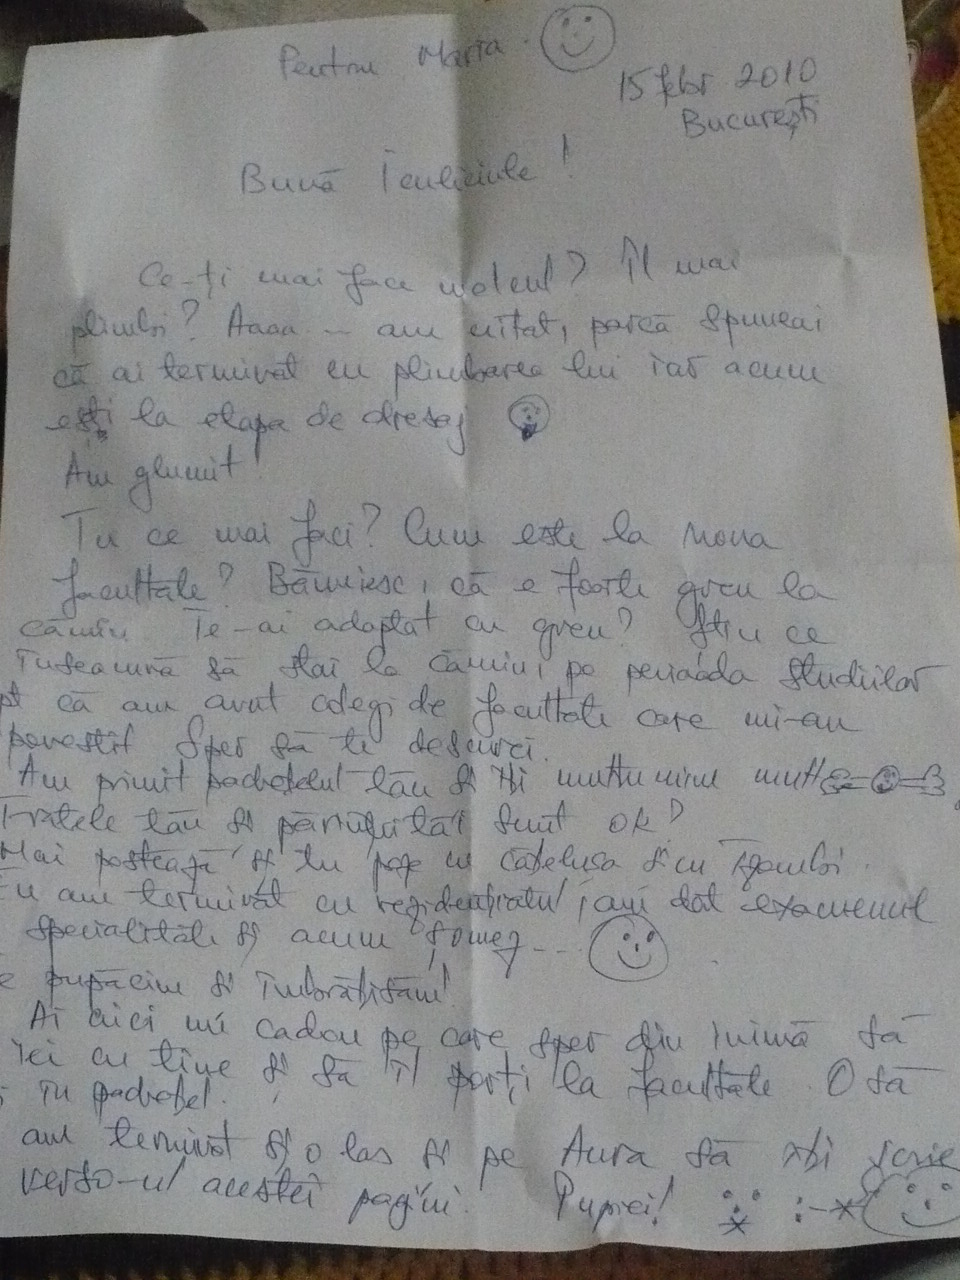 Pentru Maria.
15 febr 2010
București
Bună Iculiciule!
Ce-ți mai face melcul? Îl mai
plimbi? Aaaa - am uitat, parcă spuneai
că ai terminat cu plimbarea lui iar acum
ești la etapa de dresaj
Am glumit!
Tu ce mai faci? Cum este la noua
facultate? Bănuiesc, că e foarte greu la
cămin. Te-ai adaptat cu greu? Știu ce
înseamnă să stai la cămin, pe perioada studiilor
pt că am avut colegi de facultate care mi-au
povestit. Sper să te descurci.
Am primit pachețelul tău și îți mulțumim mult
Fratele tău și părinții tăi sunt ok?
Mai postează și tu poze cu cățelușa și cu
Eu am terminat cu rezidențiatul, am dat examenul
specialitate și acum șomez....
e pupăcim și îmbrățișăm!
Ai aici un cadou pe care sper din inimă să
iei cu tine și să îl porți la facultate O să
în pachețel.
am terminat și o las și pe Aura să îți scrie
verso-ul acestei pagini. Pupici! :-*